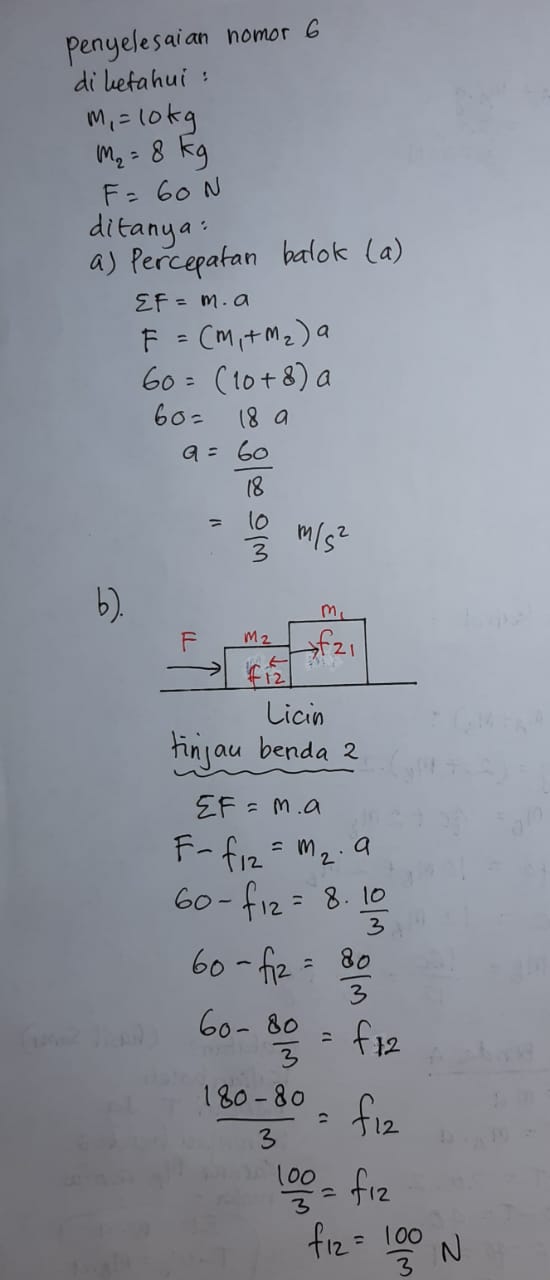 Penyelesaian nomor 6
diketahui :
m₁ = 10 kg
m₂ = 8 kg
F = 60 N
ditanya :
a) Percepatan balok (a)
ΣF = m . a
F = (m₁ + m₂) a
60 = (10 + 8) a
60 = 18 a
a = 60/18
= 10/3 m/s²
b).
m₁
F m₂ f₂₁
f₁₂
Licin
tinjau benda 2
ΣF = m . a
F - f₁₂ = m₂ . a
60 - f₁₂ = 8 . 10/3
60 - f₁₂ = 80/3
60 - 80/3 = f₁₂
180 - 80/3 = f₁₂
100/3 = f₁₂
f₁₂ = 100/3 N